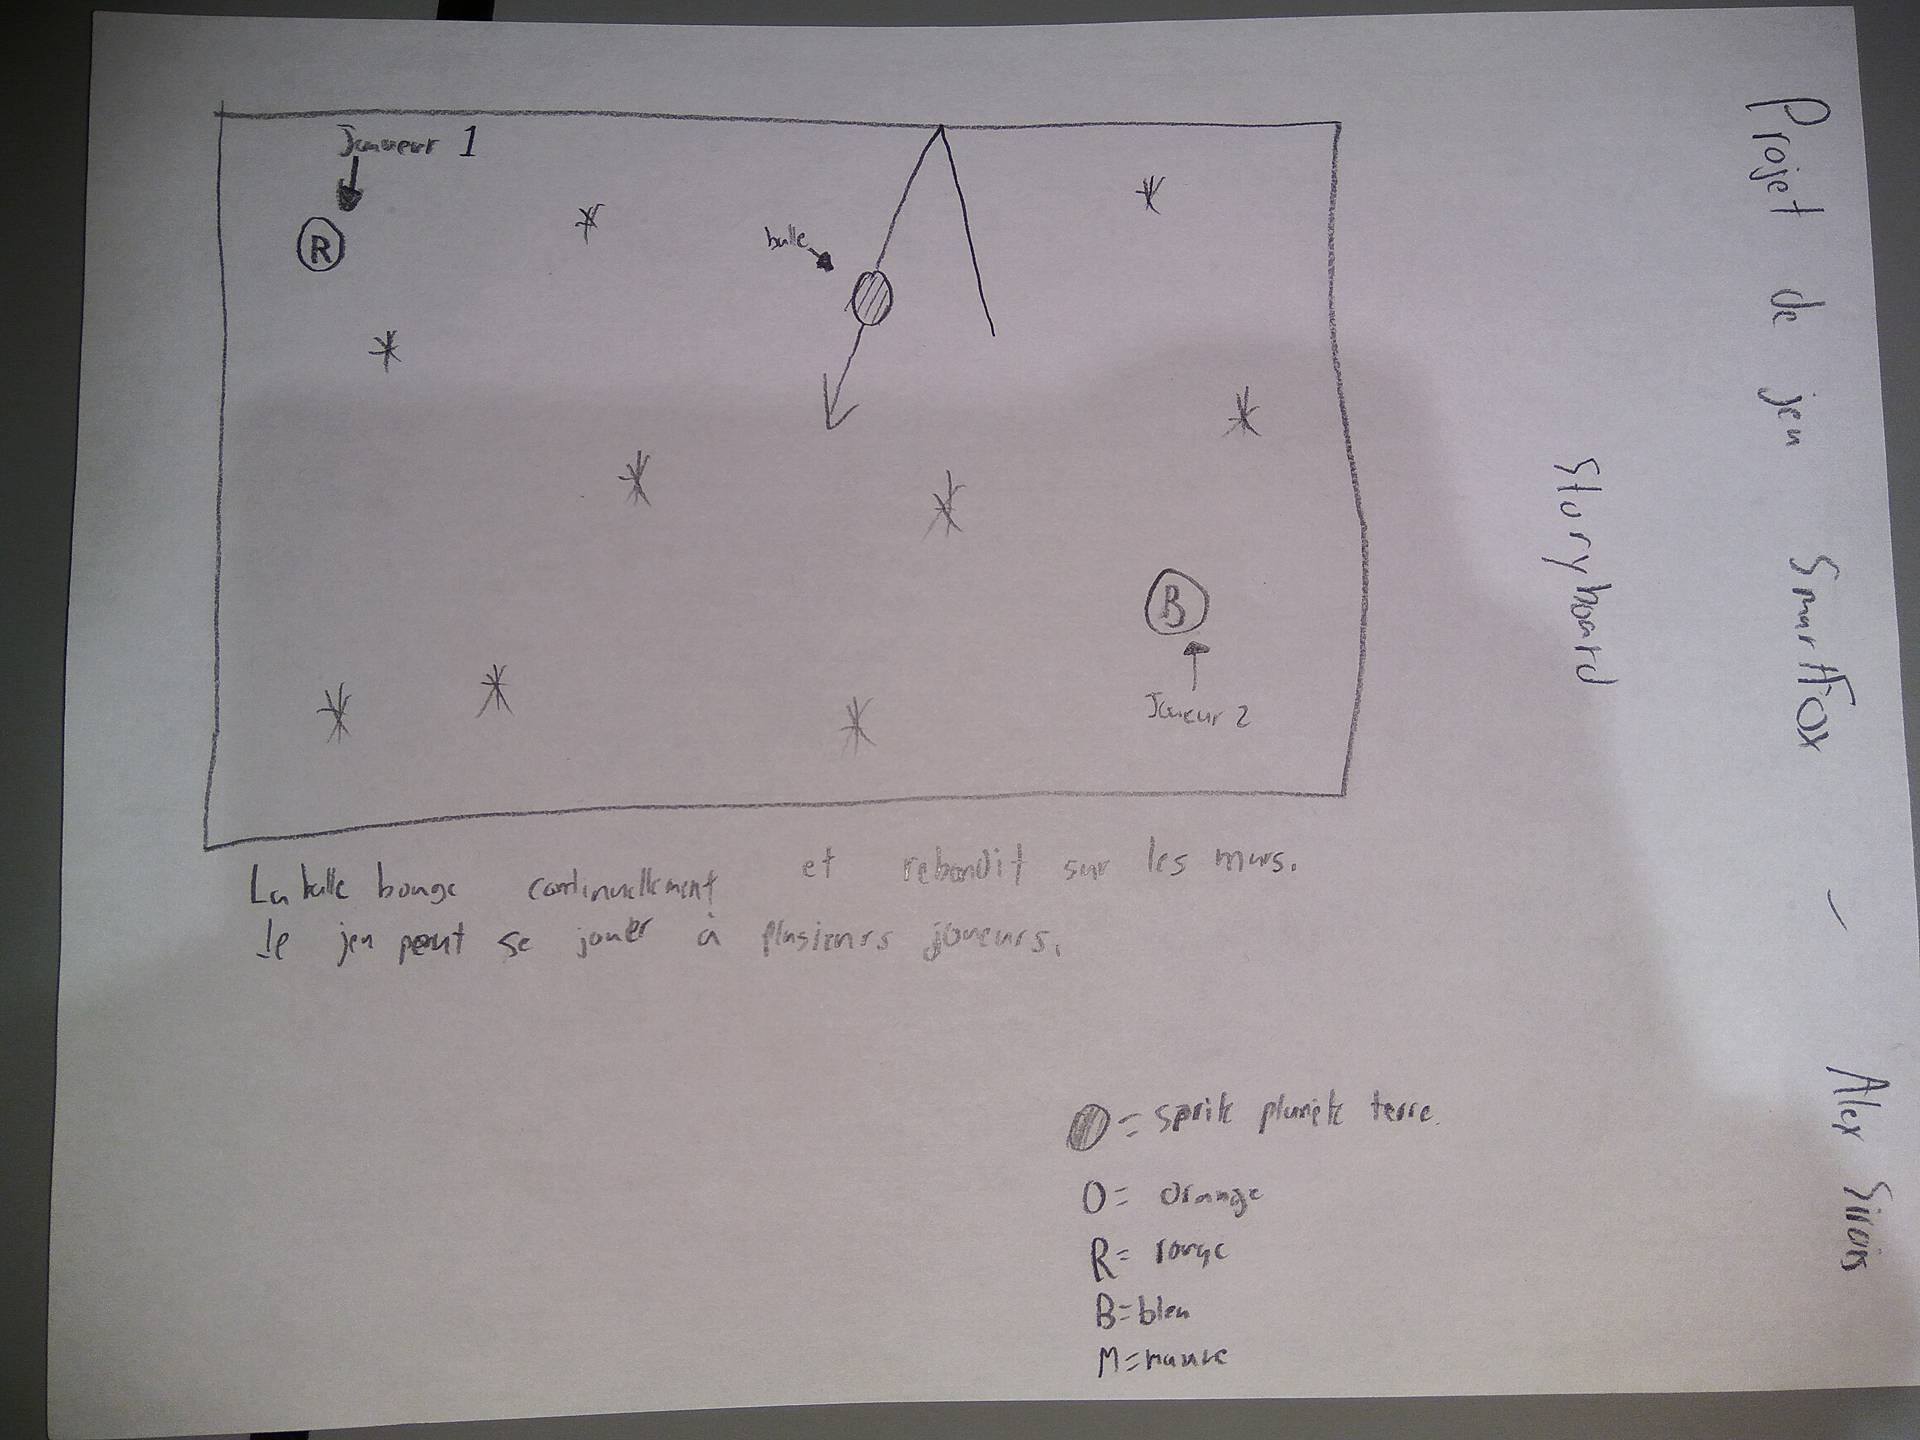 Projet de jeu SmartFox - Alex Sirois
Storyboard
Joueur 1
R
balle
B
Joueur 2
La balle bouge continuellement et rebondit sur les murs.
Le jeu peut se jouer à plusieurs joueurs.
= sprite planète terre.
O = orange
R = rouge
B = bleu
M = mauve